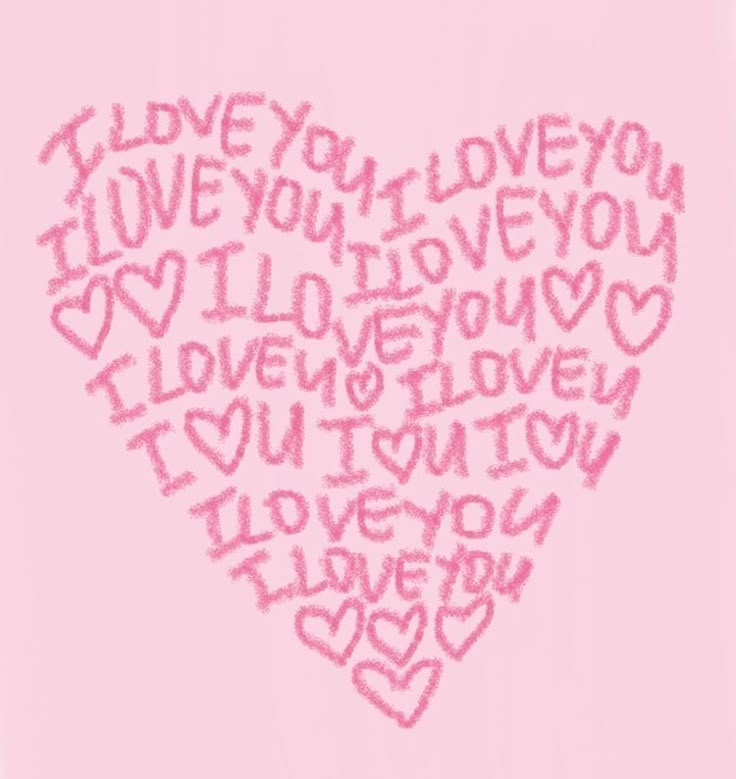 I LOVE YOU I LOVE YOU
I LOVE YOU I LOVE YOU
♡ ♡ I LOVE YOU ♡ ♡
I LOVE U ♡ I LOVE U
I ♡ U I ♡ U I ♡ U
I LOVE YOU
I LOVE YOU
♡ ♡ ♡
♡